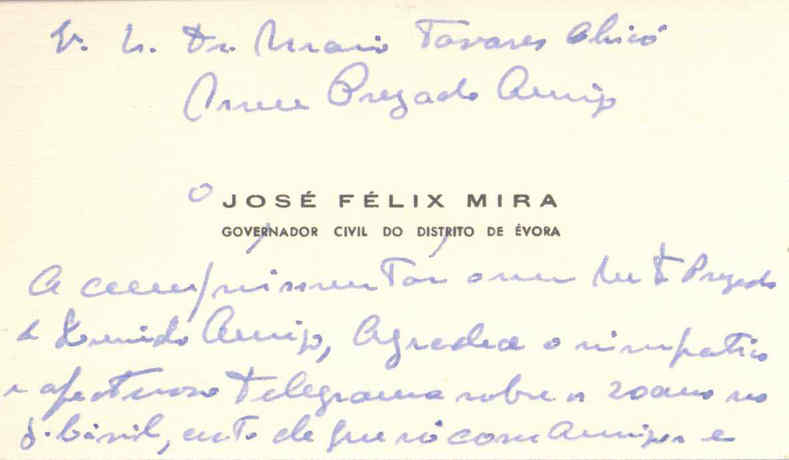 Dr. Mario Tavares Chicó
Meu Prezado Amigo
O JOSÉ FÉLIX MIRA
GOVERNADOR CIVIL DO DISTRITO DE ÉVORA
A cumprimentar o seu Mto Prezado
e Querido Amigo, Agradece o simpatico
e afectuoso telegrama sobre os 20 anos no
G. Civil, certo de que só com Amigos e